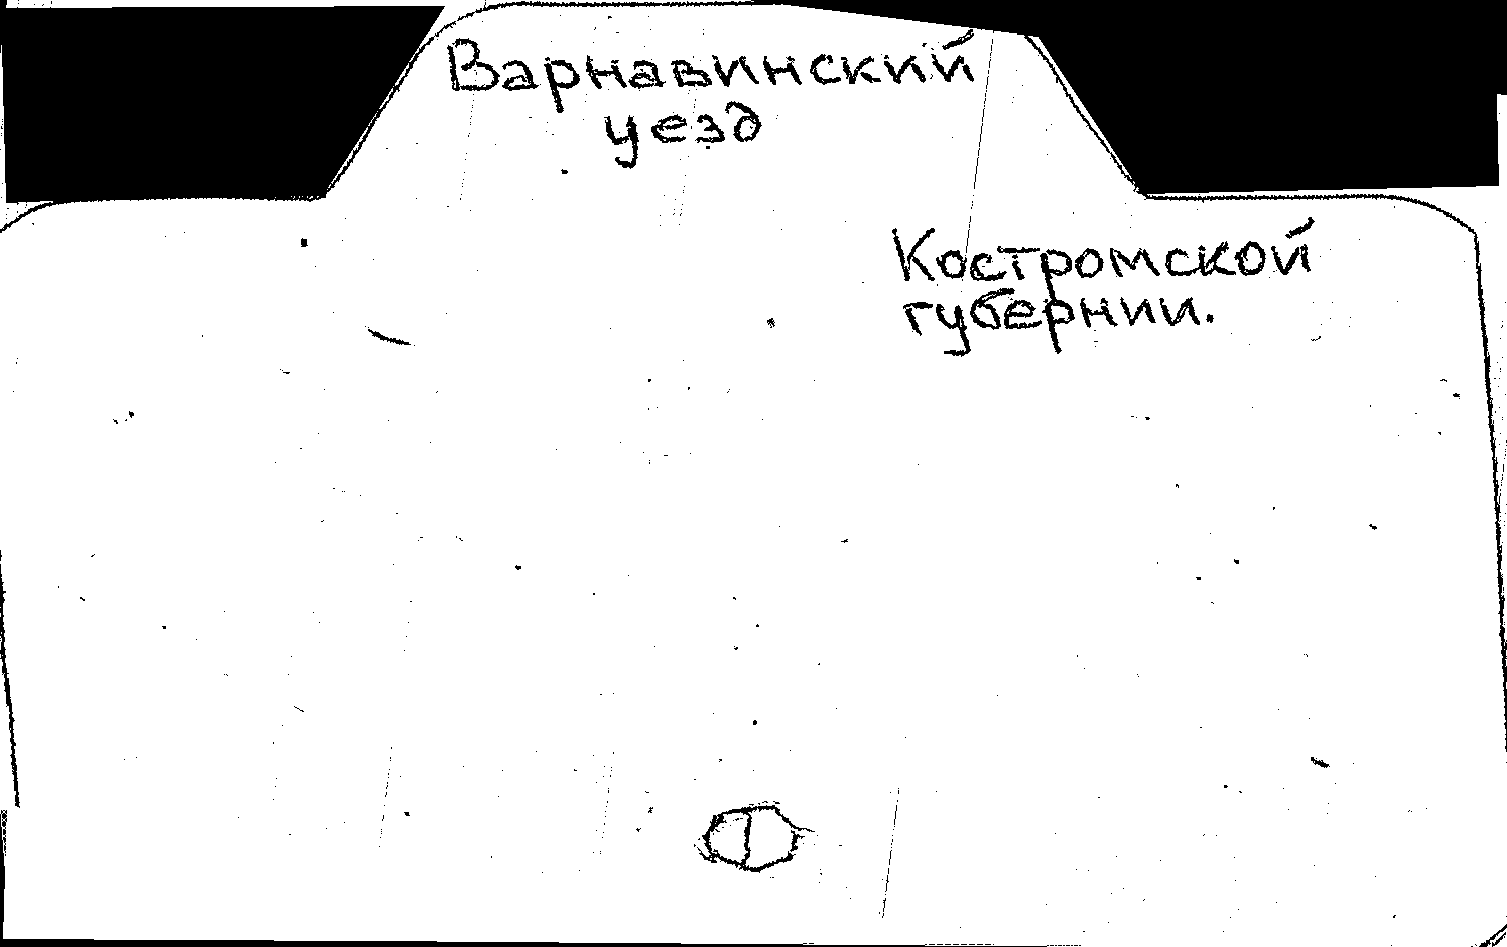 Варнавинский
уезд
Костромской
губернии.